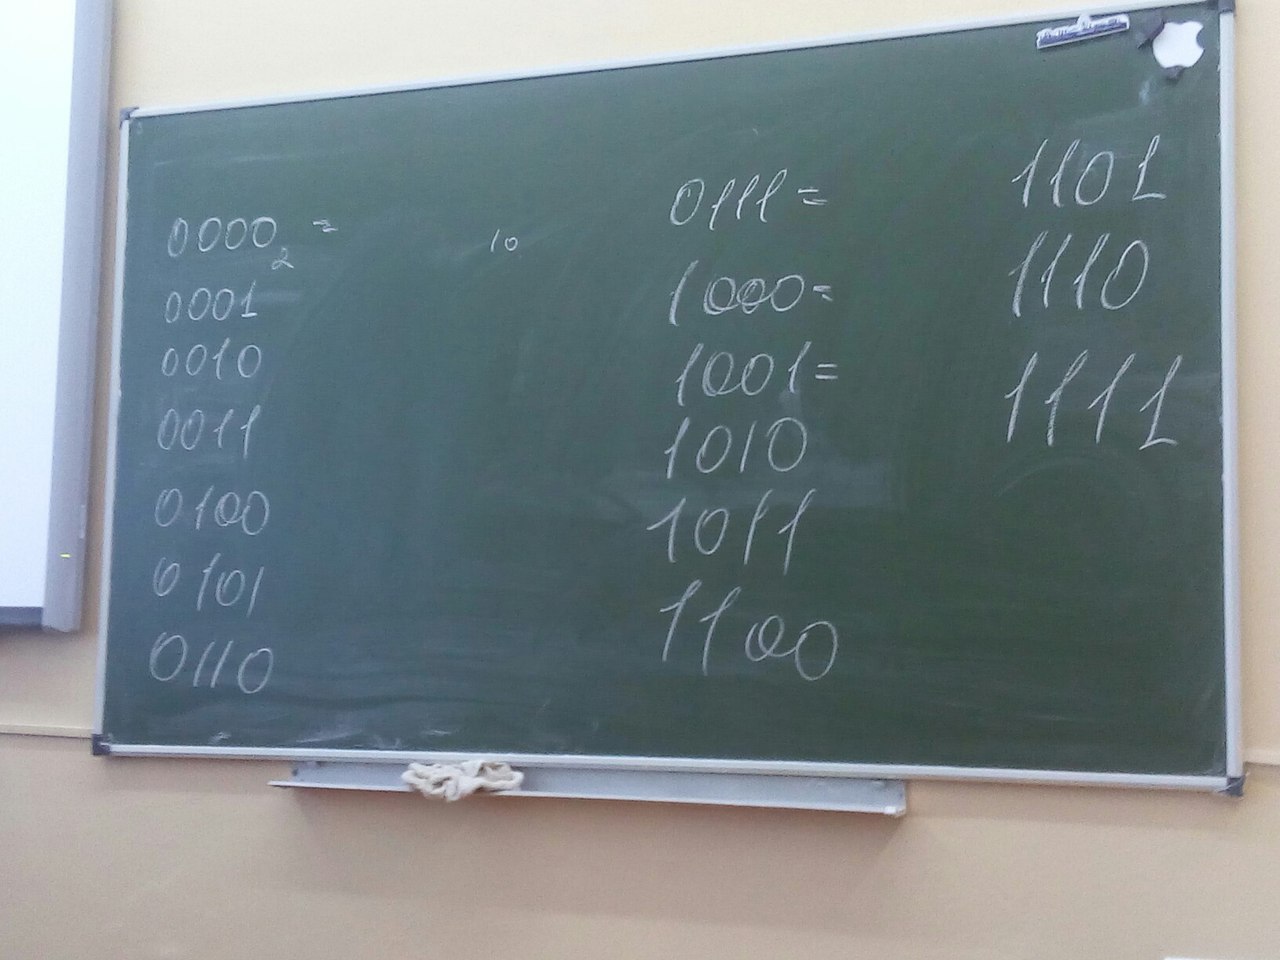 0000₂ = 10
0001
0010
0011
0100
0101
0110
0111 =
1000 =
1001 =
1010
1011
1100
1101
1110
1111